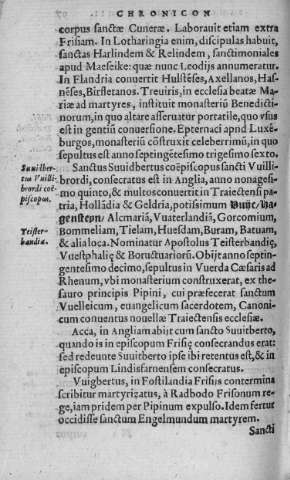 CHRONICON
corpus sanctæ Cuneræ. Laborauit etiam extra
Frisiam. In Lotharingia enim, discipulas habuit,
sanctas Harlindem & Relindem, sanctimoniales
apud Maeseike: quæ nunc Leodijs annumeratur.
In Flandria conuertit Hulstēses, Axellanos, Has-
nēses, Birfletanos. Treuiris, in ecclesia beatæ Ma-
riæ ad martyres, instituit monasteriū Benedicti-
norum, in quo altare asseruatur portatile, quo vsus
est in gentiū conuersione. Epternaci apud Luxē-
burgos, monasteriū cōstruxit celeberrimū, in quo
sepultus est anno septingētesimo trigesimo sexto.
Suuidber-
tus Vuilli-
brordi coë-
piscopus.
Sanctus Suuidbertus coëpiscopus sancti Vuilli-
brordi, consecratus est in Anglia, anno nonagesi-
mo quinto, & multos conuertit in Traiectensi pa-
tria, Hollādia & Geldria, potisimum Duijt, Ha-
genstepn, Alcmariā, Vuaterlandiā, Gorcomium,
Teister-
bandia.
Bommeliam, Tielam, Huesdam, Buram, Batuam,
& alia loca. Nominatur Apostolus Teisterbandię,
Vuestphalię & Boructuariorū. Obijt anno septin-
gentesimo decimo, sepultus in Vuerda Cæsaris ad
Rhenum, vbi monasterium construxerat, ex the-
sauro principis Pipini, cui præfecerat sanctum
Vuelleicum, euangelicum sacerdotem, Canoni-
cum conuentus nouellæ Traiectensis ecclesiæ.
Acca, in Angliam abijt cum sancto Suuitberto,
quando is in episcopum Frisię consecrandus erat:
sed redeunte Suuitberto ipse ibi retentus est, & in
episcopum Lindisfarnensem consecratus.
Vuigbertus, in Fostilandia Frisiis contermina
scribitur martyrizatus, à Radbodo Frisonum re-
ge, iam pridem per Pipinum expulso. Idem fertur
occidisse sanctum Engelmundum martyrem.
Sancti